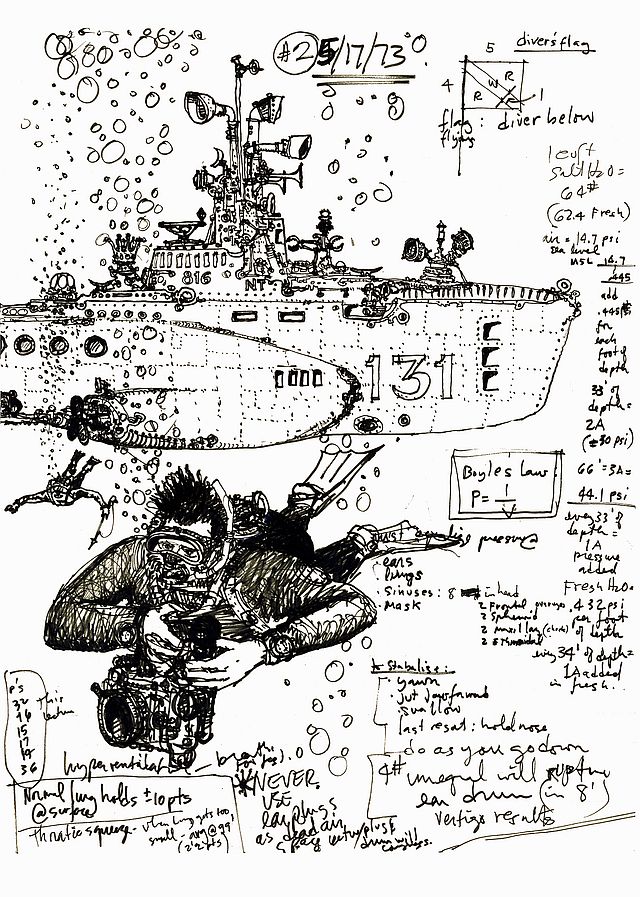 #2 5/17/73
diver's flag
5
4
R
W
R
1
flag: diver below
flying
1 cu ft
salt H2O =
64#
(62.4 Fresh)
air = 14.7 psi
sea level
14.7
.445
add
.445#
for
each
foot of
depth
33' of
depth =
2A
(±30 psi)
66' = 3A =
44.1 psi
every 33' of
depth =
1A
pressure
added
Fresh H2O =
.432 psi
per foot
of depth
every 34' of depth =
1A added
in fresh.
816
NT
131
Boyles Law
P = 1/V
must equalize pressure
ears
lungs
Sinuses: 8 in head
Mask
2 Frontal
2 Sphenoid
2 maxillary
2
to Stabalise:
yawn
jut jaw forward
swallow
last resort: hold nose
do as you go down
4# unequal will rupture
ear drum (in 8')
vertigo results
P's
32
16
15
17
19
36
This
lecture
hyperventilate
breathe
*NEVER
USE
earplugs
as dead air
space
drum will
Normal lung holds ±10 pts
@ surface
Thoracic squeeze - when lung gets too
small - avg @ 99
(2 1/2 pts)